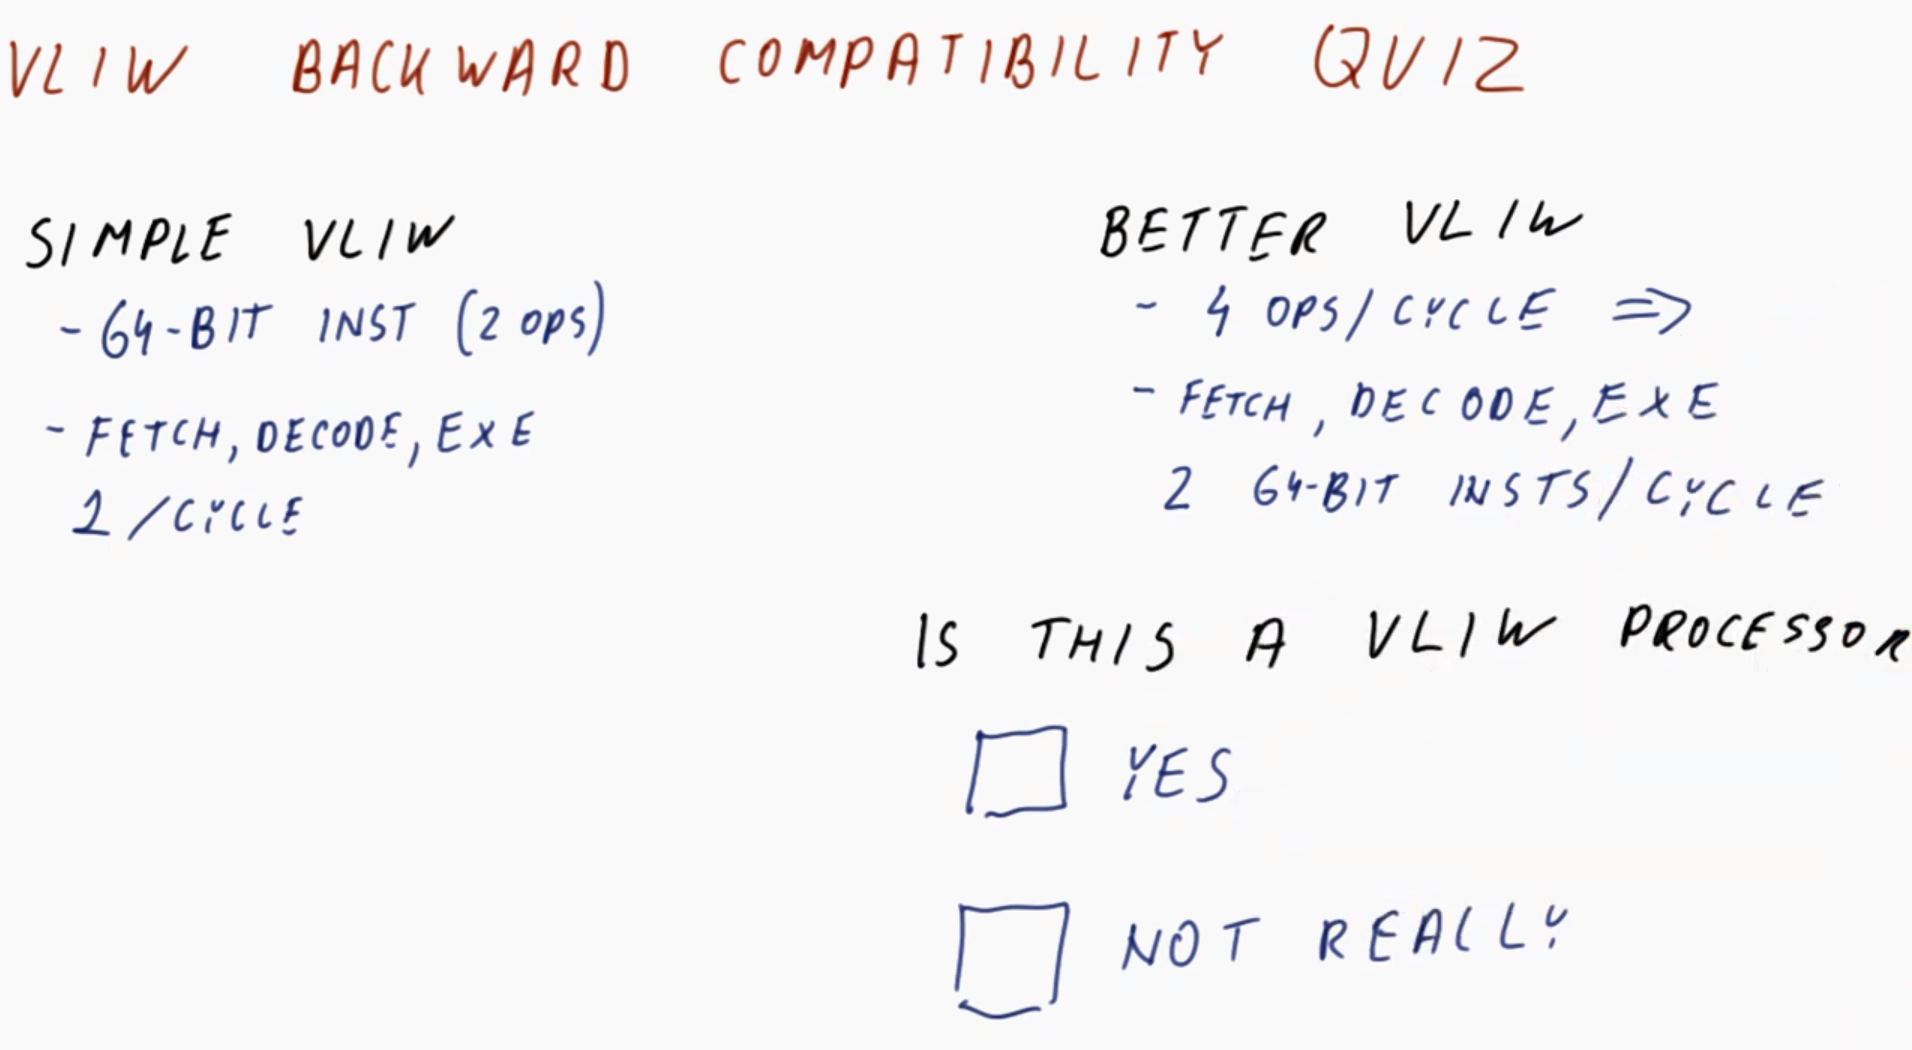 VLIW BACKWARD COMPATIBILITY QUIZ
SIMPLE VLIW
- 64-BIT INST (2 OPS)
- FETCH, DECODE, EXE
1/CYCLE
BETTER VLIW
- 4 OPS/CYCLE ⇒
- FETCH, DECODE, EXE
2 64-BIT INSTS/CYCLE
IS THIS A VLIW PROCESSOR
YES
NOT REALLY